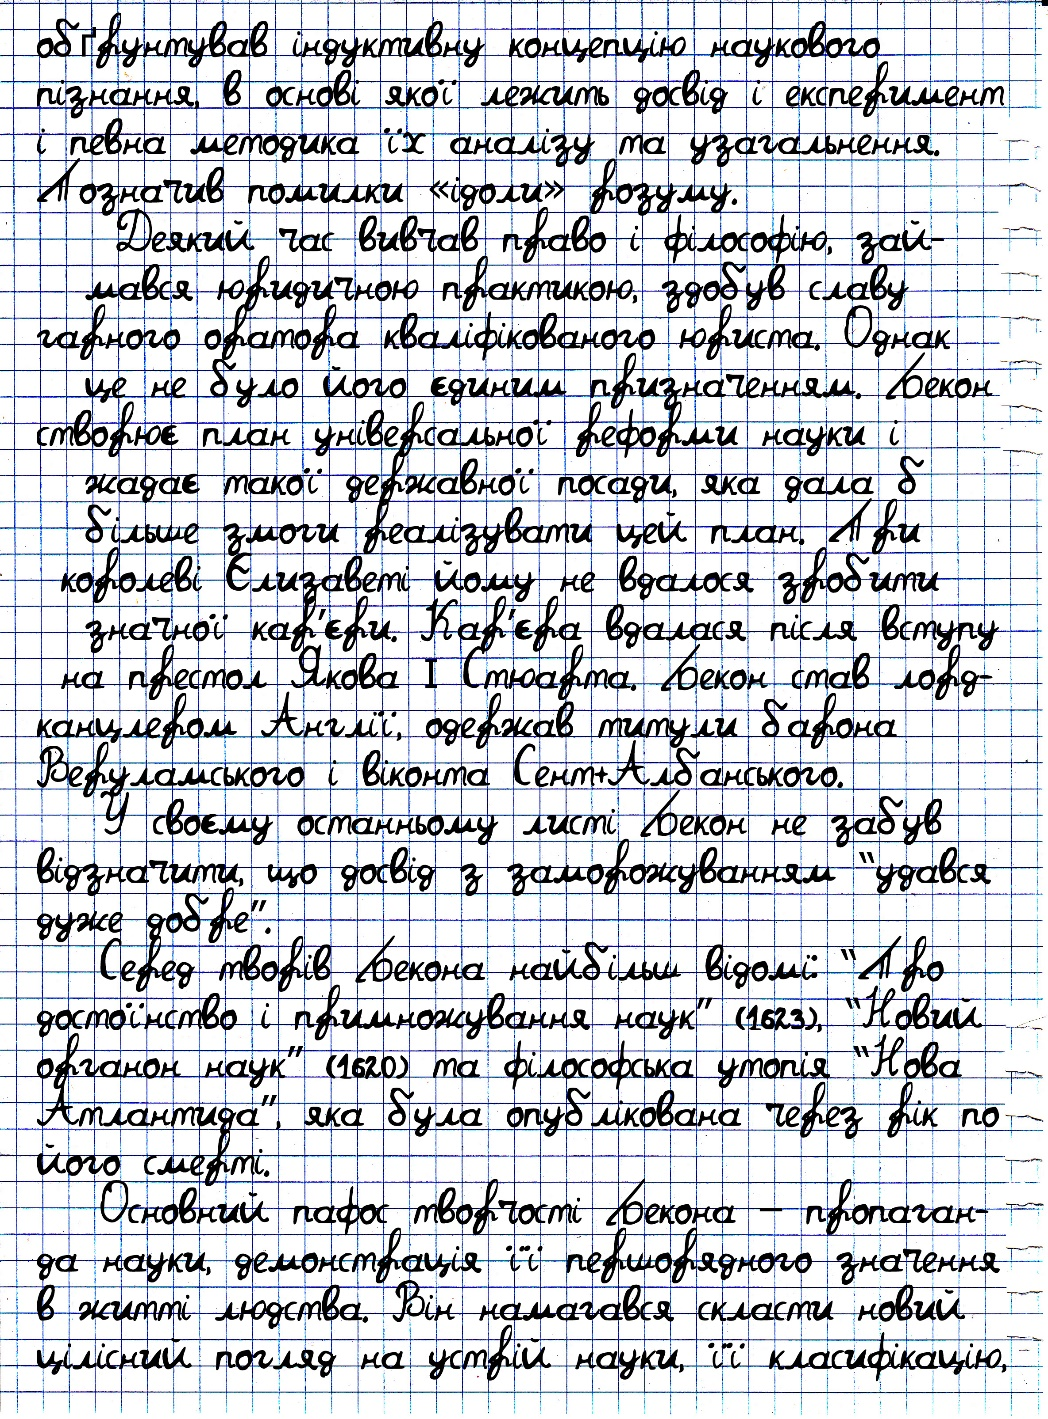 обґрунтував індуктивну концепцію наукового
пізнання, в основі якої лежить досвід і експеримент
і певна методика їх аналізу та узагальнення.
Позначив помилки «ідоли» розуму.
Деякий час вивчав право і філософію, зай-
мався юридичною практикою, здобув славу
гарного оратора кваліфікованого юриста. Однак
це не було його єдиним призначенням. Бекон
створює план універсальної реформи науки і
жадає такої державної посади, яка дала б
більше змоги реалізувати цей план. При
королеві Єлизаветі йому не вдалося зробити
значної кар'єри. Кар'єра вдалася після вступу
на престол Якова І Стюарта. Бекон став лорд-
канцлером Англії, одержав титули барона
Веруламського і віконта Сент+Албанського.
У своєму останньому листі Бекон не забув
відзначити, що досвід з заморожуванням "удався
дуже добре".
Серед творів Бекона найбільш відомі: "Про
достоїнство і примножування наук" (1623), "Новий
органон наук" (1620) та філософська утопія "Нова
Атлантида", яка була опублікована через рік по
його смерті.
Основний пафос творчості Бекона – пропаган-
да науки, демонстрація її першорядного значення
в житті людства. Він намагався скласти новий
цілісний погляд на устрій науки, її класифікацію,